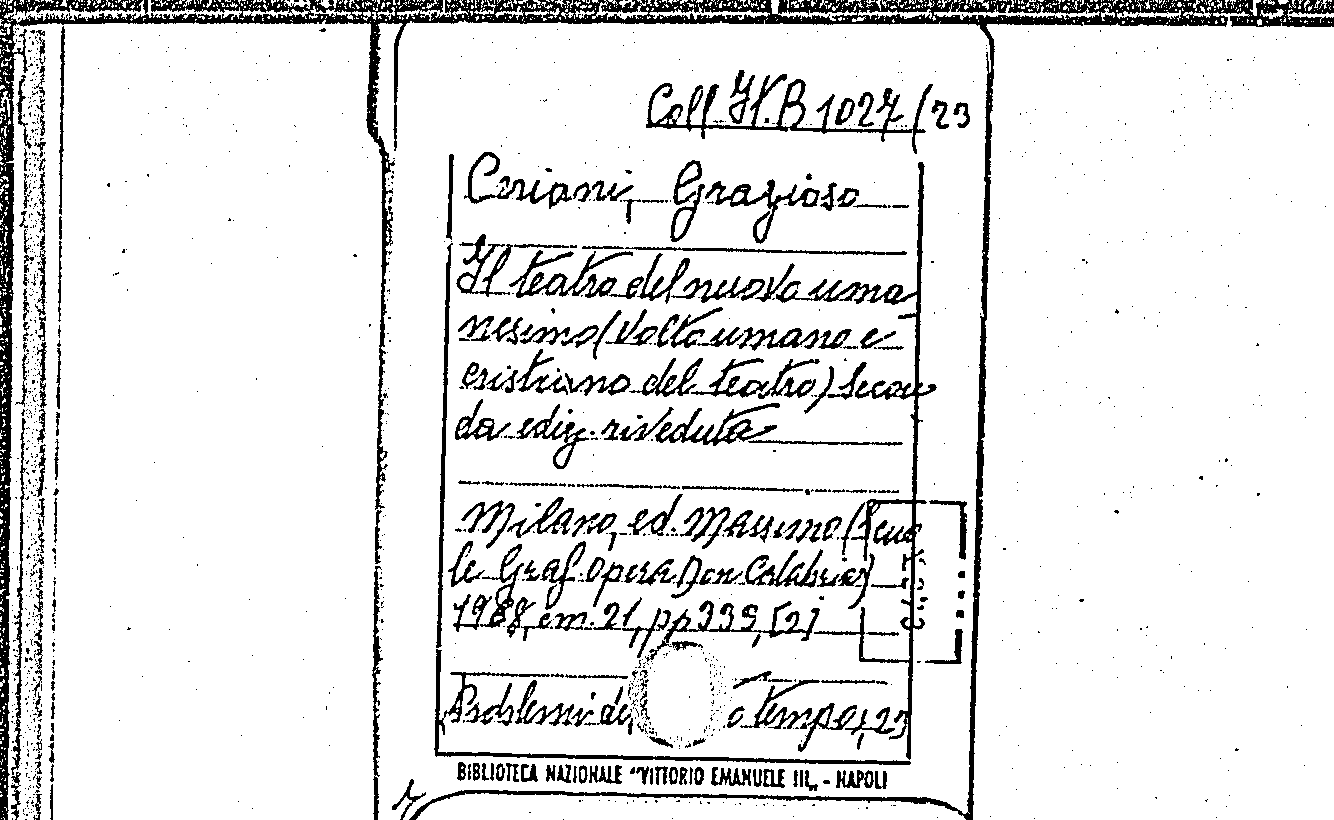 Coll. It. B 1027/23
Ceriani, Grazioso
Il teatro del nuovo uma
nesimo (Volto umano e
cristiano del teatro) Secon
da ediz. riveduta
Milano, ed. Massimo (Scuo
le Graf. Opera Don Calabria)
cm. 21, pp 339, [2]
Problemi de o tempo, 23
BIBLIOTECA NAZIONALE "VITTORIO EMANUELE III„ - NAPOLI